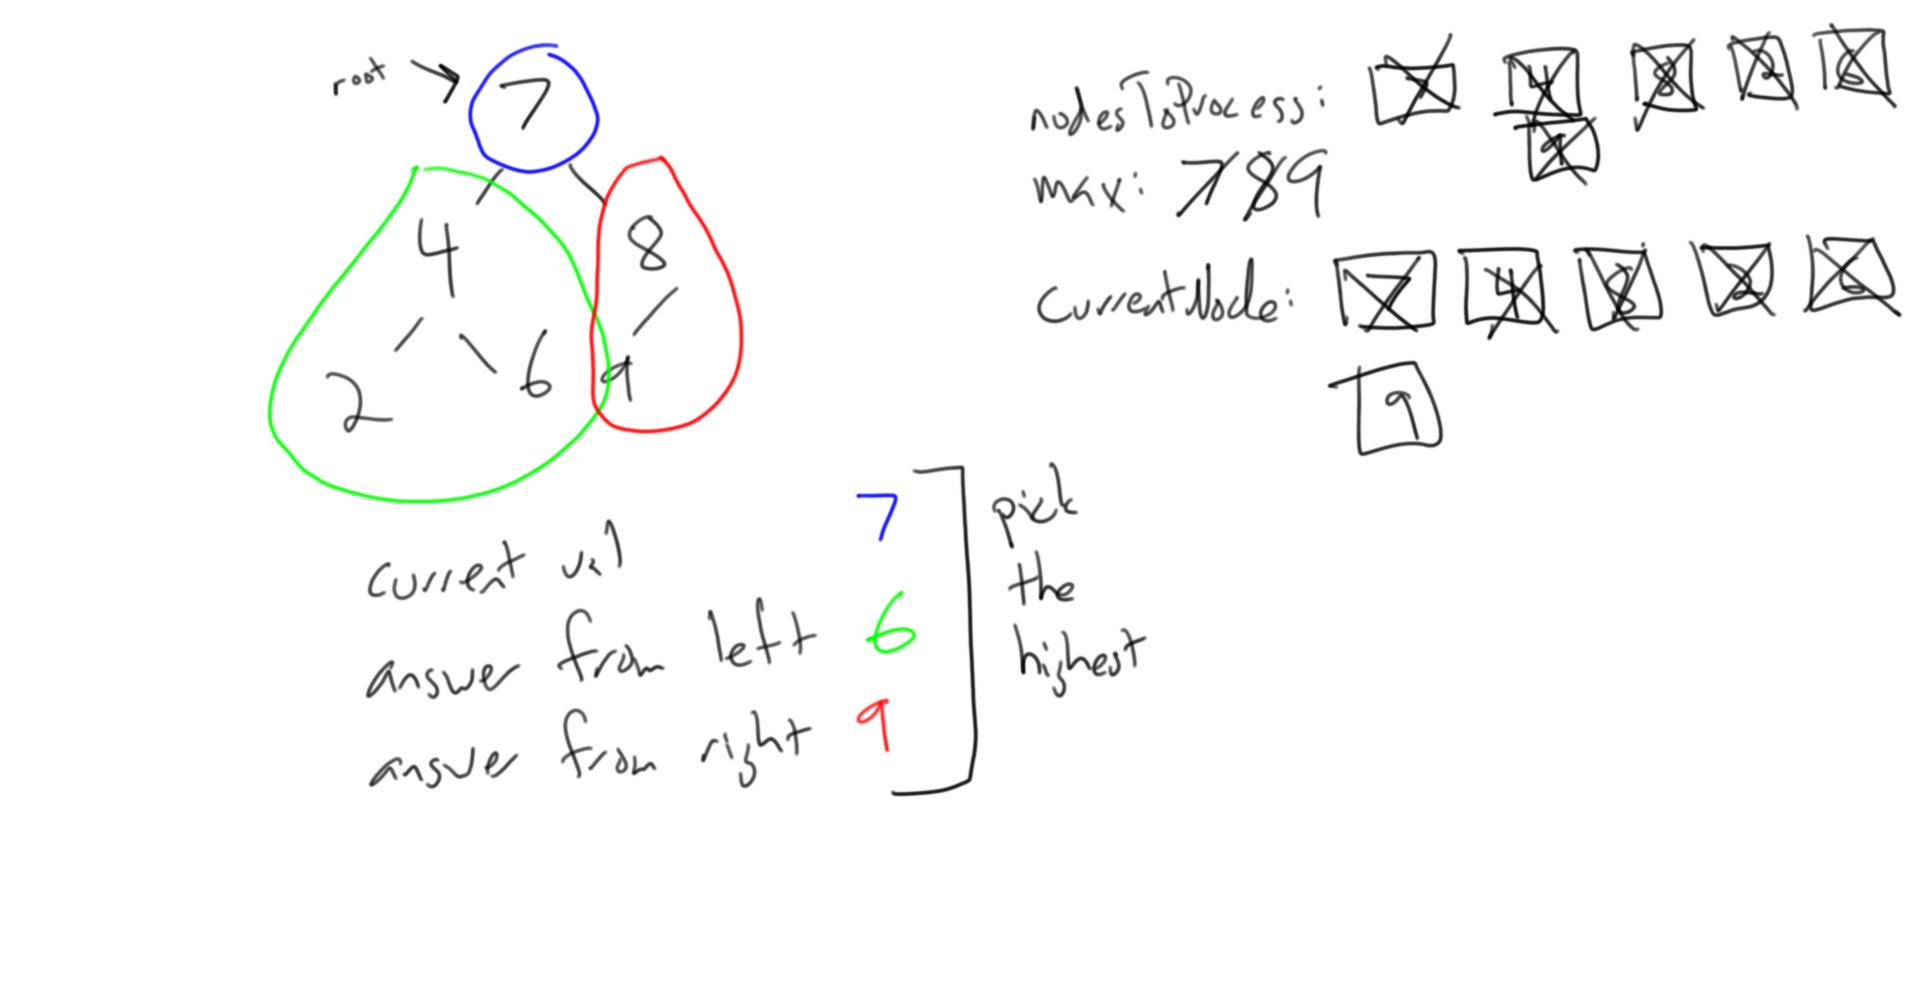 root
7
4 8
2 6 9
nodesToProcess: 7 4 8 2 6
9
max: 7 8 9
currentNode: 7 4 8 2 6
9
current val 7
answer from left 6
answer from right 9
pick
the
highest